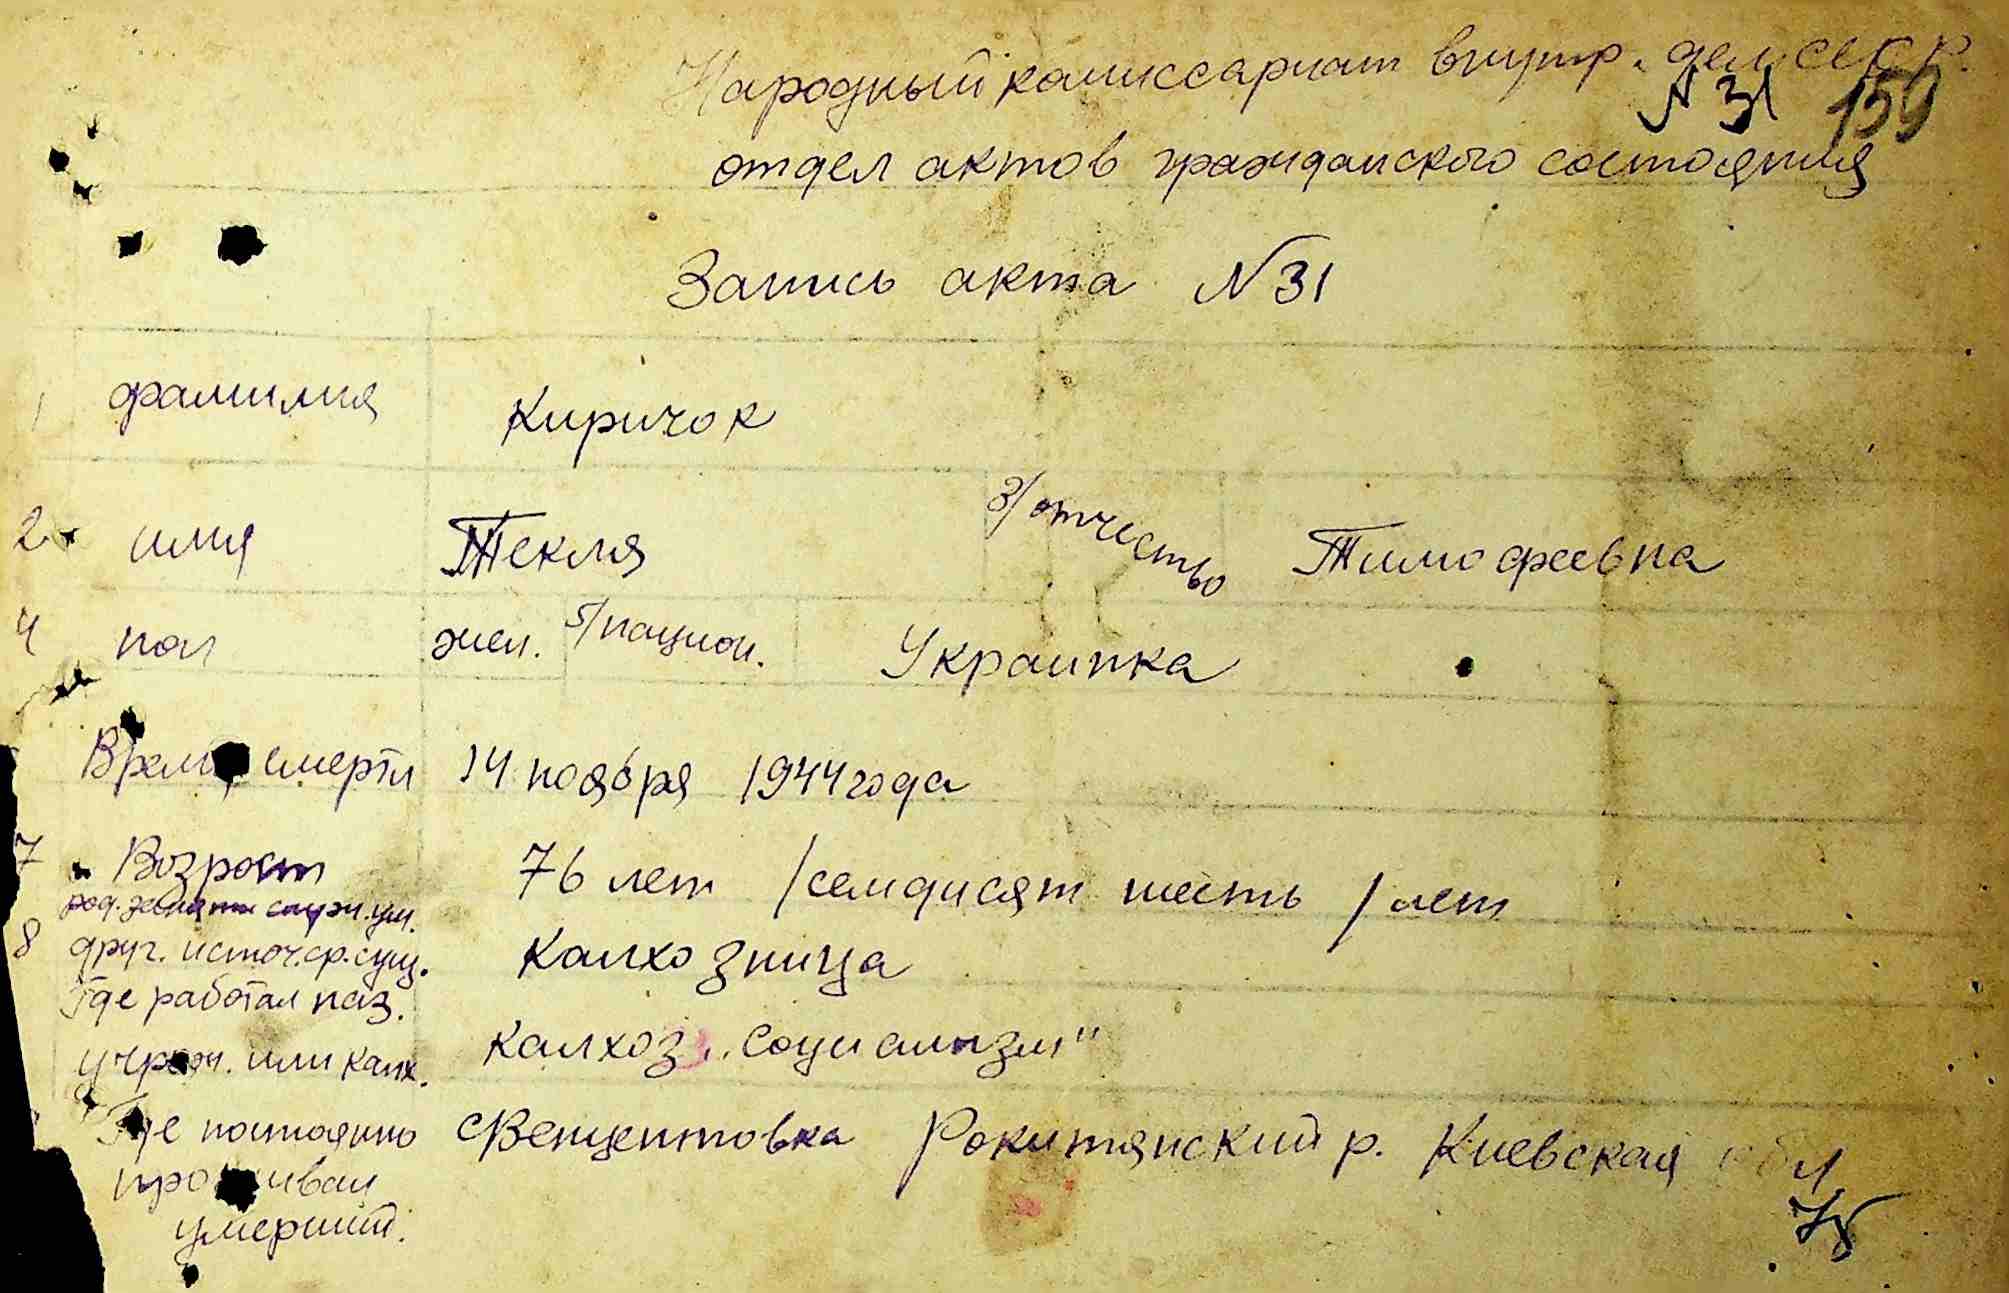 Народный комиссариат внутр. дел СССР.
N 31 159
отдел актов гражданского состояния
Запись акта N 31
1 фамилия Киричок
2 имя Текля 3/отчество Тимофеевна
4 пол жен. 5/национ. Украинка
Время смерти 14 ноября 1944 года
7 Возрост 76 лет /семдисят шесть/ лет
род. занят
8 друг. источ. ср. сущ. Калхозница
Где работал наз.
учреж. или калх. Калхоз „Социализм"
Где постоянно с Венцентовка Рокитянский р. Киевская обл
проживал
умерший.